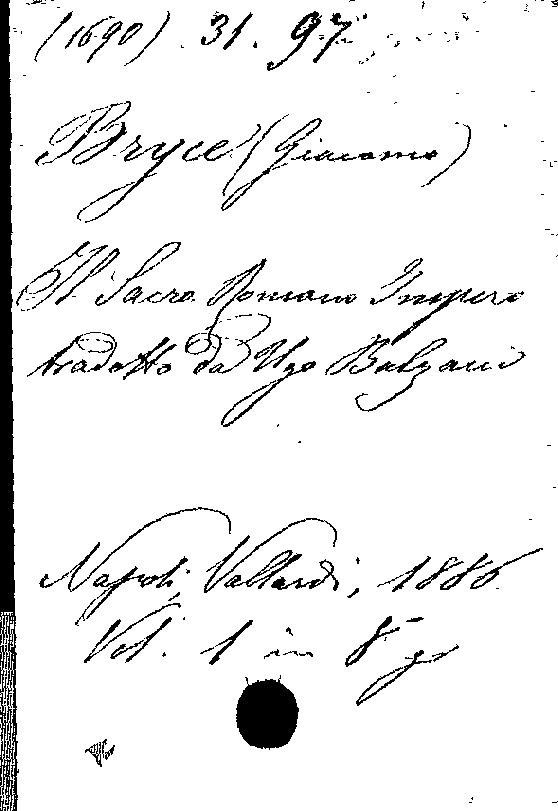 (1690) 31. 97
Bryce (Giacomo)
Il Sacro Romano Impero
tradotto da Ugo Balzani
Napoli, Vallardi, 1886
Vol. 1 in 8º gr